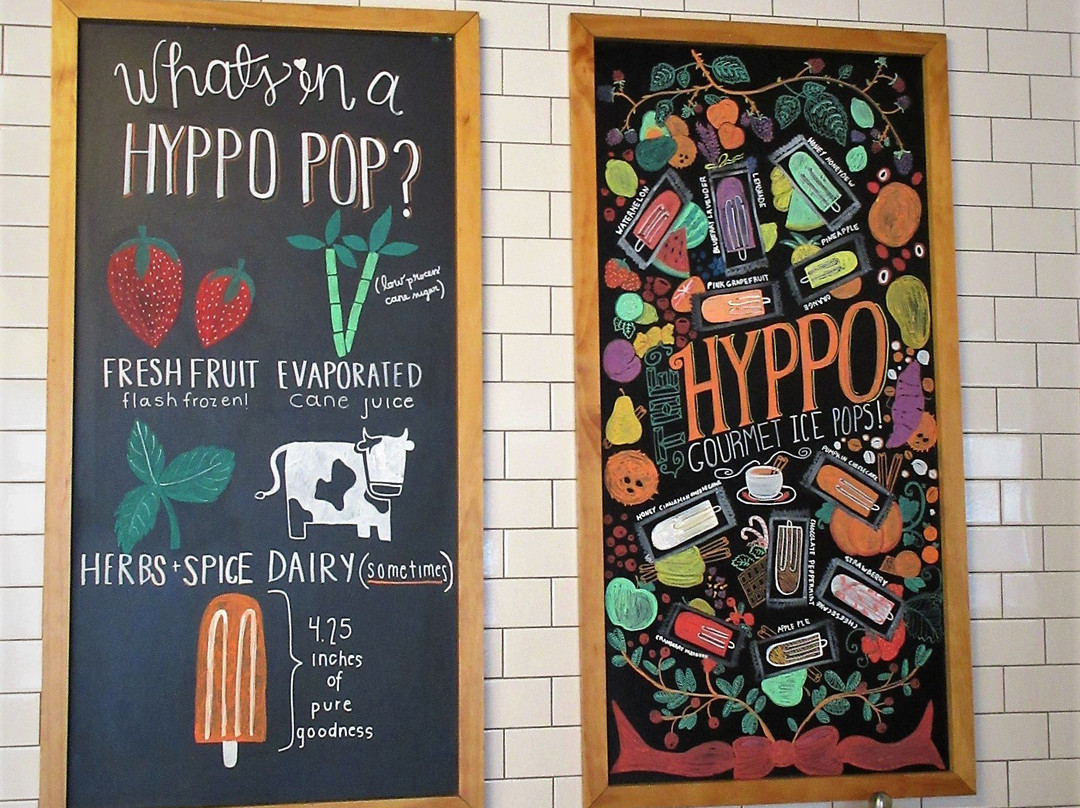 whats in a
HYPPO POP?
(low process
cane sugar)
FRESH FRUIT
flash frozen!
EVAPORATED
cane juice
HERBS + SPICE
DAIRY (sometimes)
4.25
inches
of
pure
goodness
WATERMELON
BLUEBERRY LAVENDER
LEMONADE
HONEY HONEYDEW
PINEAPPLE
ORANGE
PINK GRAPEFRUIT
THE
HYPPO
GOURMET ICE POPS!
HONEY CINNAMON
PUMPKIN CHEESECAKE
CHOCOLATE PEPPERMINT
STRAWBERRY
CHEESECAKE
CRANBERRY
APPLE PIE